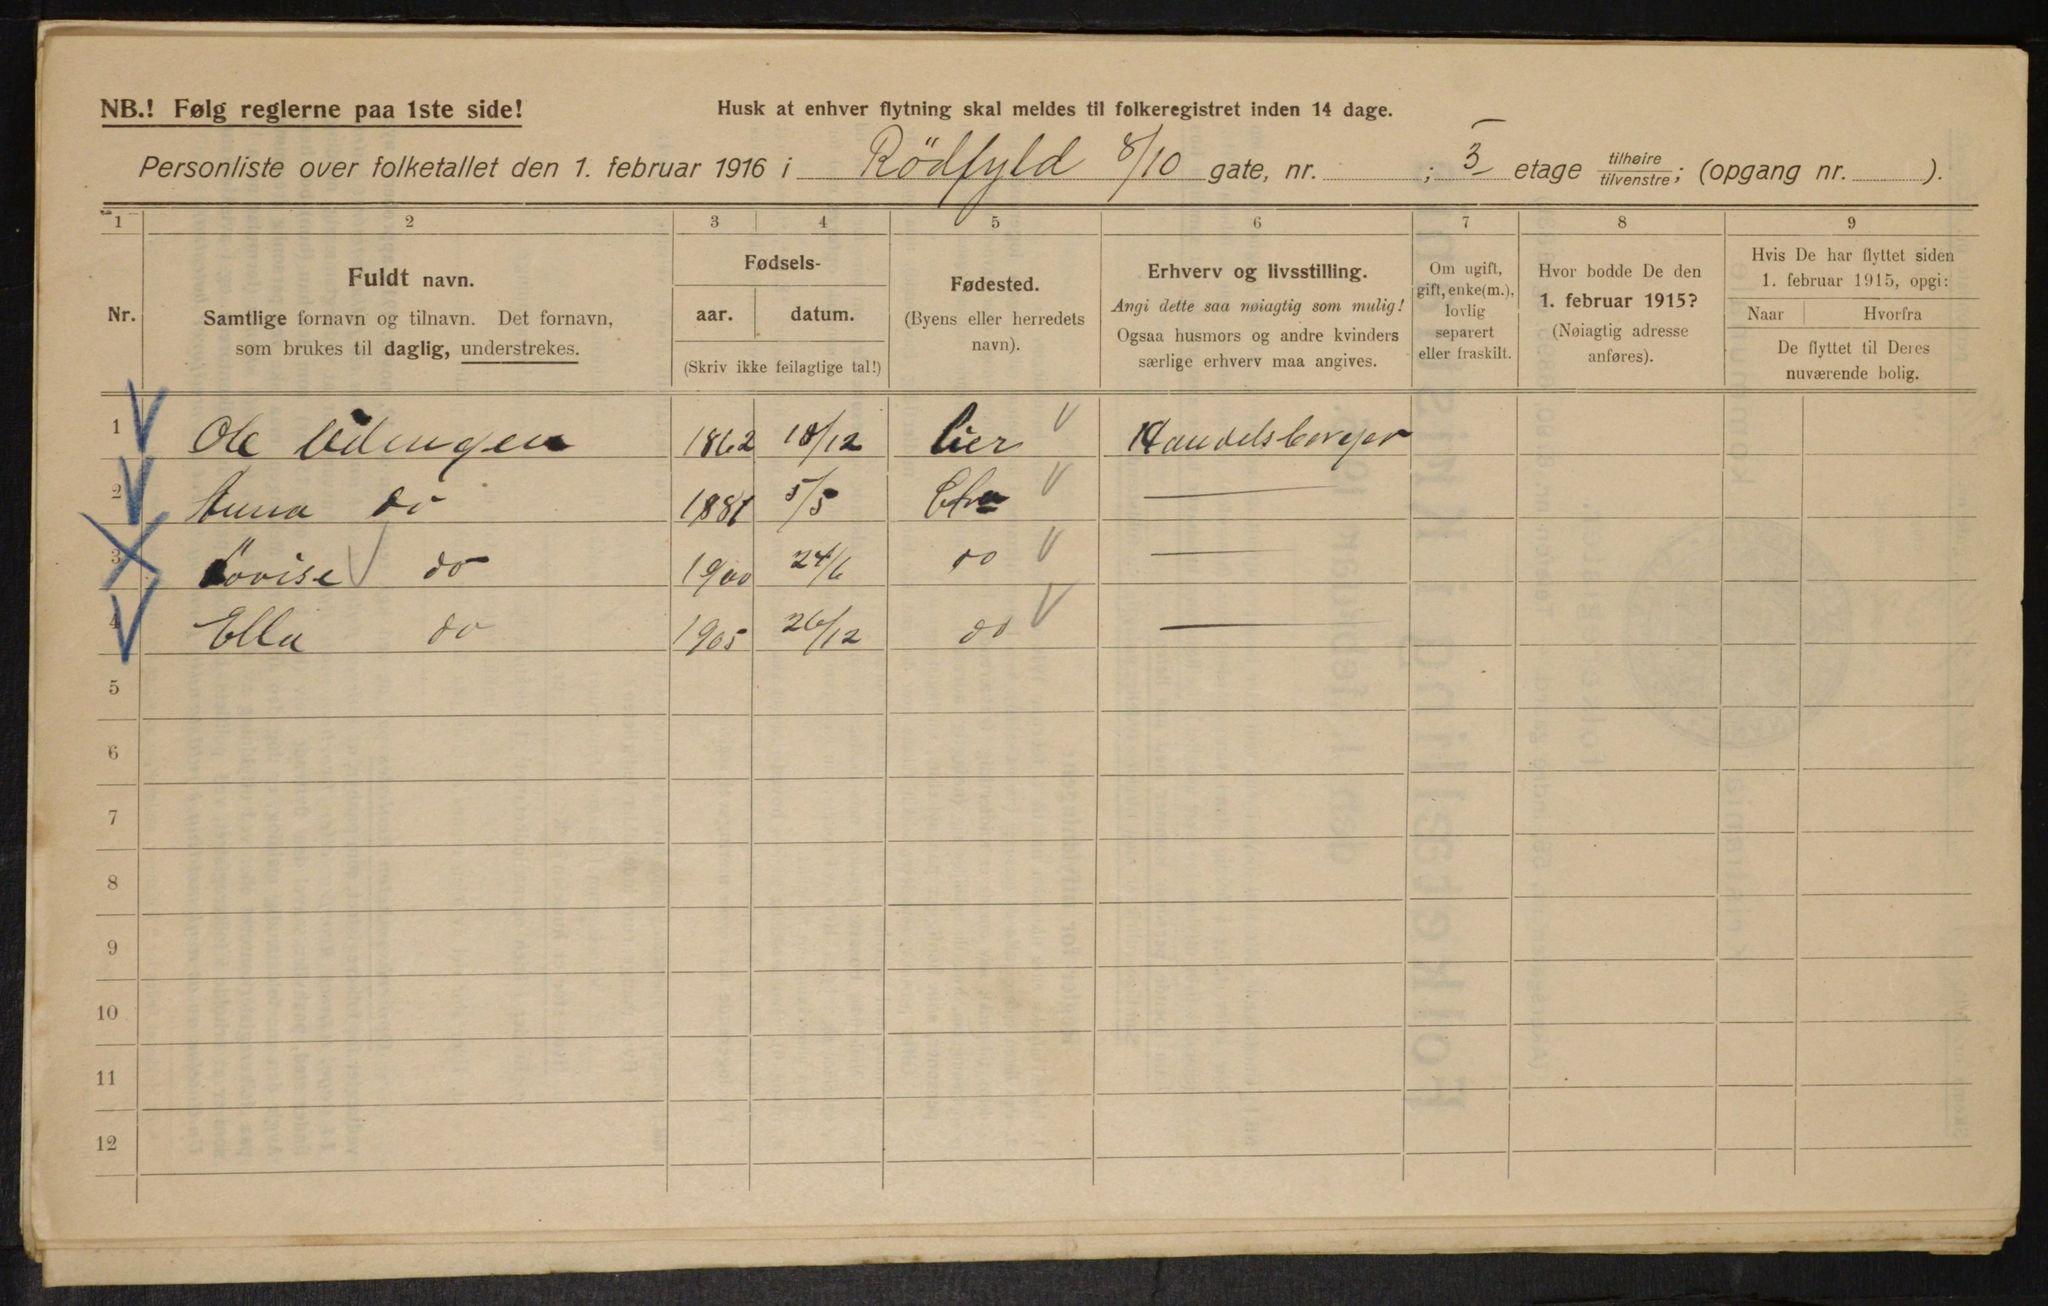 NB.! Følg reglerne paa 1ste side!
Husk at enhver flytning skal meldes til folkeregistret inden 14 dage.
Personliste over folketallet den 1. februar 1916 i Rödfyld 8/10 gate, nr. ; 3 etage tilhøire/tilvenstre; (opgang nr. ).
1 2 3 4 5 6 7 8 9
Nr.
Fuldt navn.
Samtlige fornavn og tilnavn. Det fornavn,
som brukes til daglig, understrekes.
Fødsels-
aar. datum.
(Skriv ikke feilagtige tal!)
Fødested.
(Byens eller herredets
navn).
Erhverv og livsstilling.
Angi dette saa nøiagtig som mulig!
Ogsaa husmors og andre kvinders
særlige erhverv maa angives.
Om ugift,
gift, enke(m.),
lovlig
separert
eller fraskilt.
Hvor bodde De den
1. februar 1915?
(Nøiagtig adresse
anføres).
Hvis De har flyttet siden
1. februar 1915, opgi:
Naar Hvorfra
De flyttet til Deres
nuværende bolig.
1 Ole 1862 18/12 Lier Handelsborger
2 Anna do 1881 5/5 Chra
3 Lovise do 1900 24/6 do
4 Ella do 1905 26/12 do
5
6
7
8
9
10
11
12